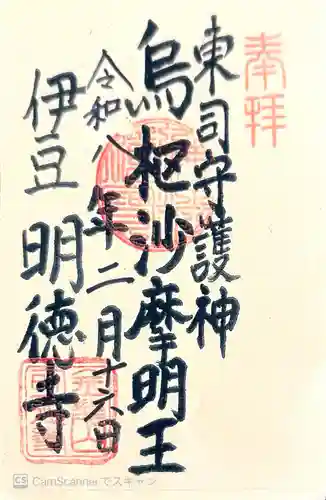 奉拝
東司守護神
烏枢沙摩明王
令和八年二月十六日
伊豆 明徳寺
CS CamScanner でスキャン